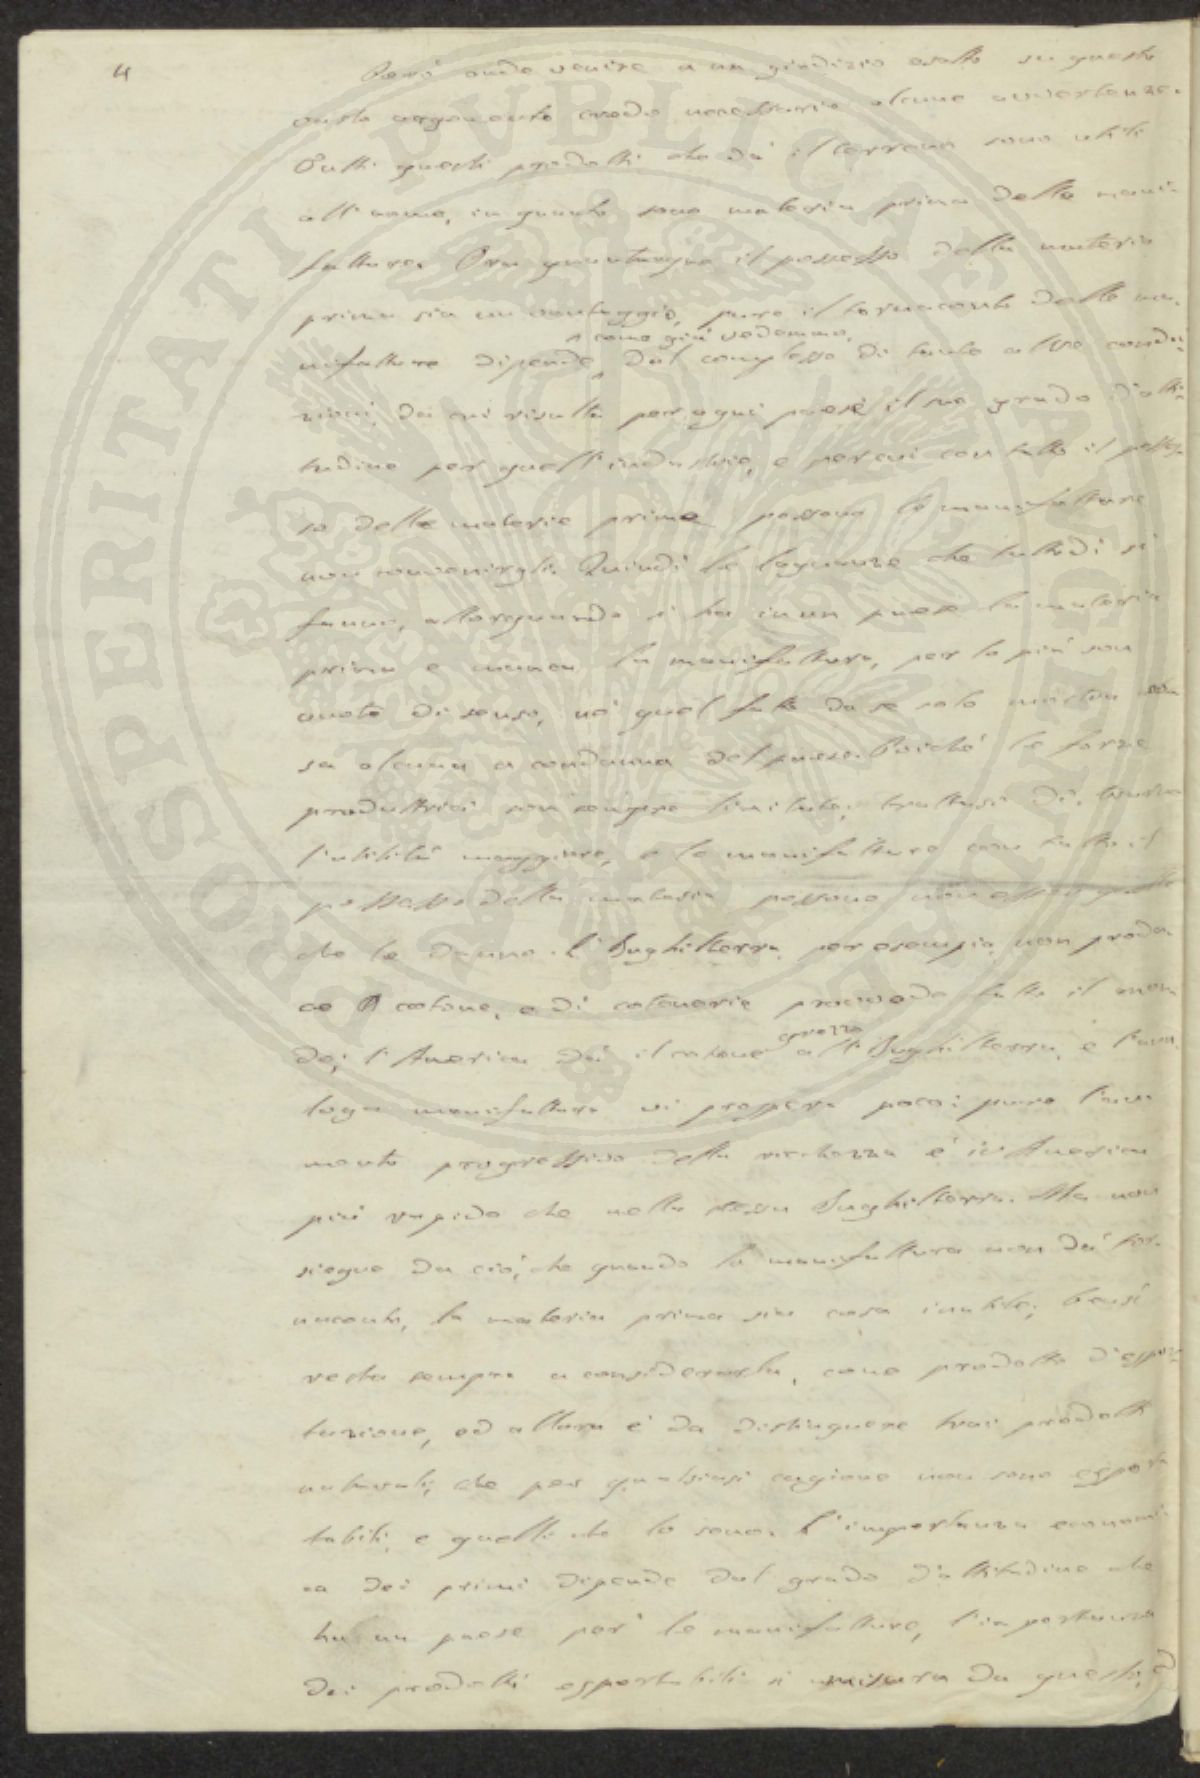 4
Però onde venire a un giudizio esatto su questo
vasto argomento credo necessario alcune avvertenze.
Tutti questi prodotti che dà il terreno sono utili
all'uomo, in quanto sono materia prima delle mani-
fatture. Ora quantunque il possesso della materia
prima sia un vantaggio, pure il tornaconto delle ma-
nifatture dipende, come già vedemmo, dal complesso di tante altre condi-
zioni, da cui risulta per ogni paese il suo grado d'atti-
tudine per quell'industria, e per cui con tutto il posses-
so delle materie prime possono le manifatture
non convenirgli. Quindi le lagnanze che tuttodì si
fanno, allorquando si ha in un paese la materia
prima e manca la manifattura, per lo più son
vuote di senso, nè quel fatto da se solo
sa alcuna a condanna del paese. Poichè le forze
produttrici son sempre limitate, trattasi di
l'utilità maggiore, e le manifatture con tutto il
possesso della materia possono non esser quelle
che le danno. L'Inghilterra, per esempio, non produ-
ce cotone, e di cotonerie provvede tutto il mon
do; l'America dà il cotone grezzo all'Inghilterra, e l'ana-
loga manifattura vi prospera poco; pure l'au
mento progressivo della ricchezza è in America
più rapido che nella stessa Inghilterra. Ma non
siegue da ciò, che quando la manifattura non dà tor-
naconto, la materia prima sia cosa inutile; bensì
resta sempre a considerarla, come prodotto d'espor-
tazione, ed allora è da distinguere trai prodotti
naturali, che per qualsiasi cagione non sono esporta
tabili, e quelli che lo sono. L'importanza economi-
ca dei primi dipende dal grado d'attitudine che
ha un paese per le manifatture, l'importanza
dei prodotti esportabili si misura da questa, e
PROSPERITATI PUBLICAE AUGENDAE